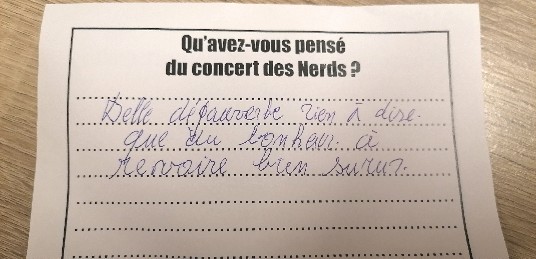 Qu'avez-vous pensé
du concert des Nerds ?
Belle découverte rien à dire.
que du bonheur. à
revoire bien surur.